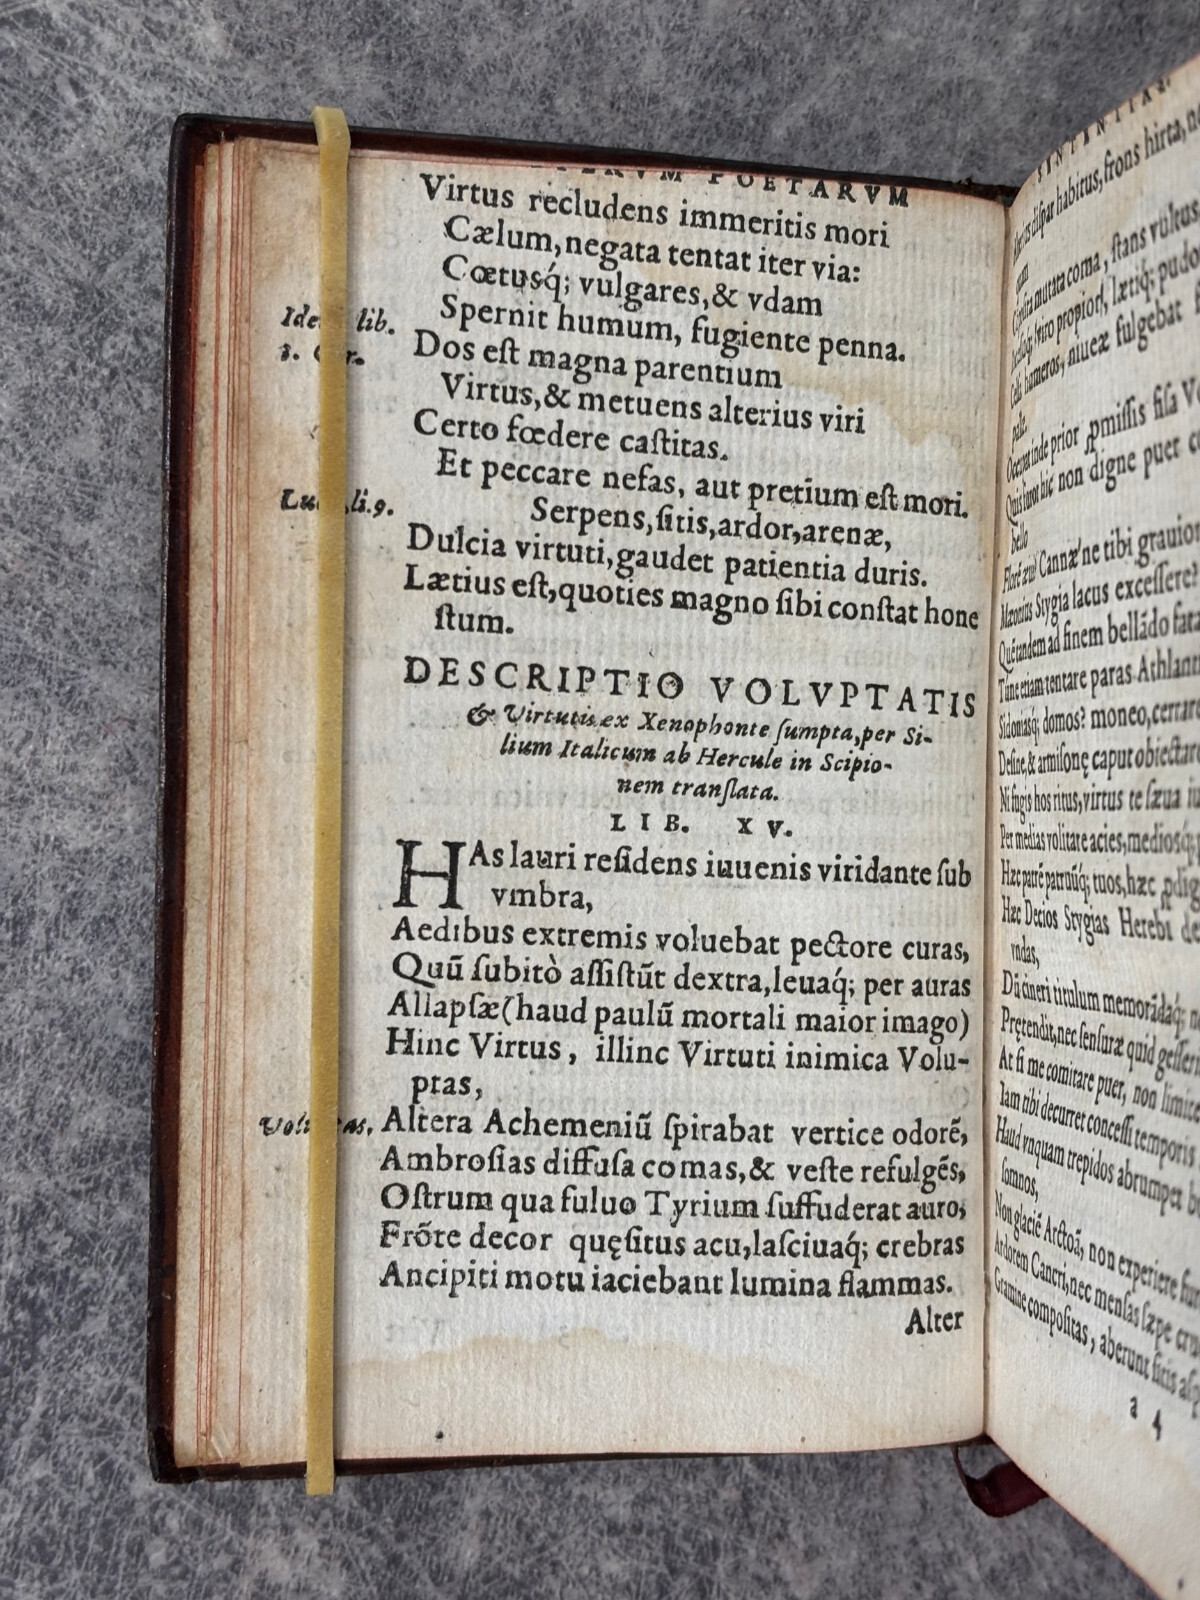 POETARVM
Virtus recludens immeritis mori
Cælum, negata tentat iter via:
Cœtusq́; vulgares, & vdam
Spernit humum, fugiente penna.
lib.
Dos est magna parentium
Virtus, & metuens alterius viri
Certo fœdere castitas.
Et peccare nefas, aut pretium est mori.
li.9.
Serpens, sitis, ardor, arenæ,
Dulcia virtuti, gaudet patientia duris.
Lætius est, quoties magno sibi constat hone
stum.
DESCRIPTIO VOLVPTATIS
& Virtutis ex Xenophonte sumpta, per Si-
lium Italicum ab Hercule in Scipio-
nem translata.
LIB. XV.
HAs lauri residens iuuenis viridante sub
vmbra,
Aedibus extremis voluebat pectore curas,
Quũ subitò assistũt dextra, leuaq́; per auras
Allapsæ (haud paulũ mortali maior imago)
Hinc Virtus, illinc Virtuti inimica Volu-
ptas,
Altera Achemeniũ spirabat vertice odorẽ,
Ambrosias diffusa comas, & veste refulgẽs,
Ostrum qua fuluo Tyrium suffuderat auro,
Frõte decor quęsitus acu, lasciuaq́; crebras
Ancipiti motu iaciebant lumina flammas.
Alter
dispar habitus, frons hirta,
mutata coma, stans vultus
propior, lætiq́; pudo
humeros, niueæ fulgebat
Occupat inde prior ꝓmissis fisa
Quis furor hic non digne puer
bello
Cannæ ne tibi grauior
Mæonius Stygia lacus excessere?
tandem ad finem bellãdo fata
Tune etiam tentare paras Athlant
Sidoniasq́; domos? moneo, certare
Desine, & armisonę caput obiectare
Ni fugis hos ritus, virtus te sæua
Per medias volitare acies, mediosq́;
Hæc patrẽ patruũq́; tuos, hæc ꝓdig
Hæc Decios Stygias Herebi de
vndas,
Dũ cineri titulum memorãdaq́;
Prętendit, nec sensuræ quid gesser
At si me comitare puer, non limite
Iam tibi decurret concessi temporis
Haud vnquam trepidos abrumpet
somnos,
Non glaciẽ Arctoã, non experiere
Ardorem Cancri, nec mensas sæpe
Gramine compositas, aberunt sitis
a 4